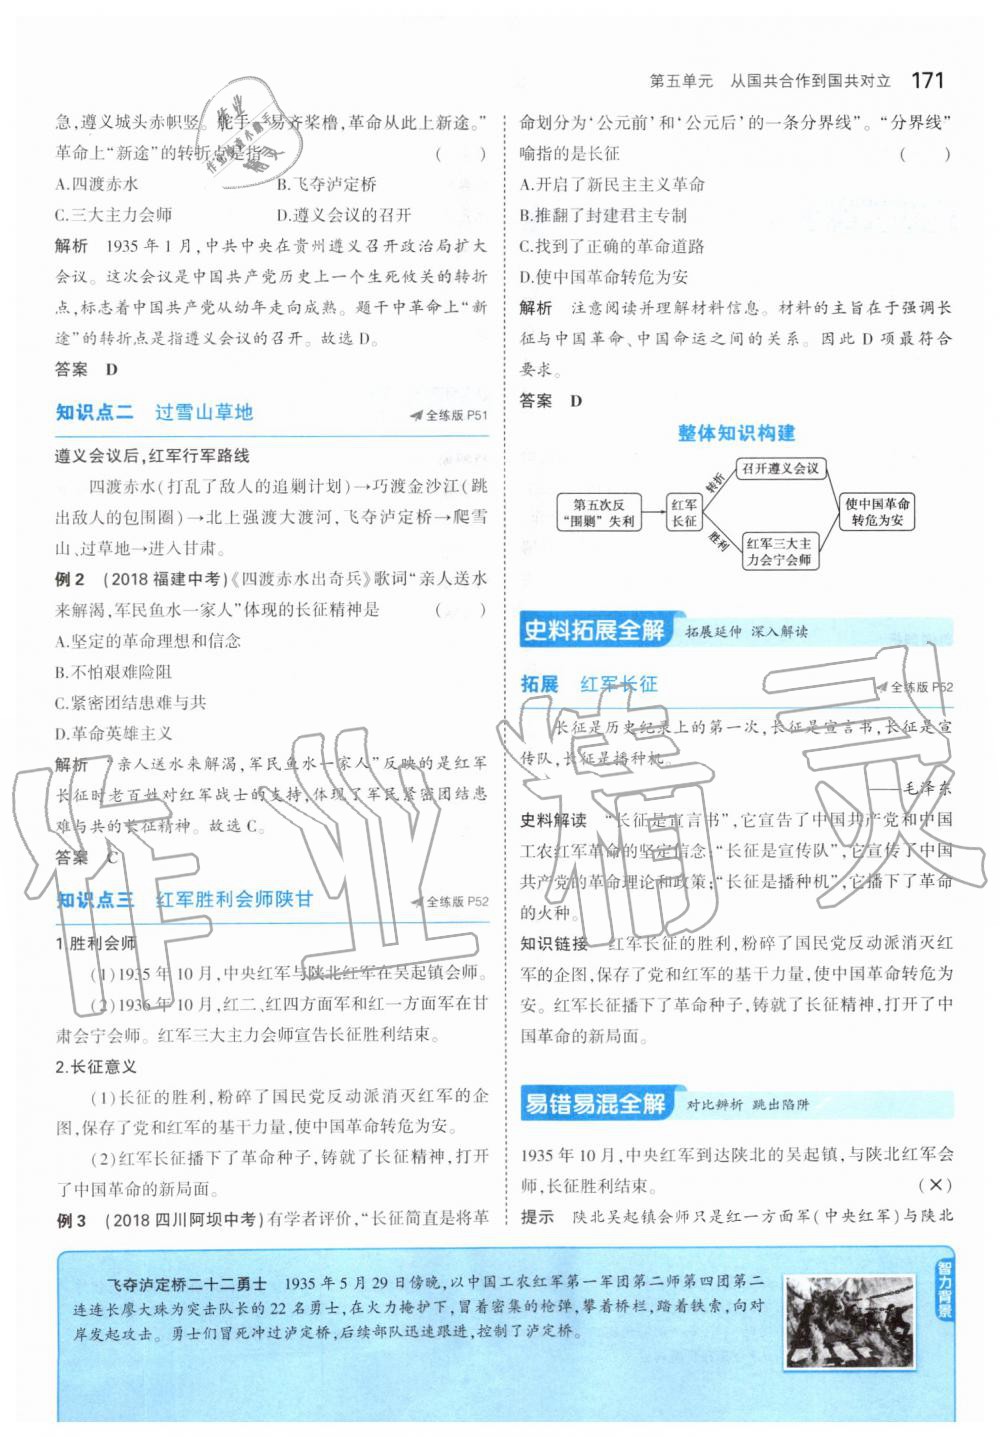 第五单元 从国共合作到国共对立 171
急,遵义城头赤帜竖。舵手一易齐桨橹,革命从此上新途。”
革命上“新途”的转折点是指 ( )
A.四渡赤水 B.飞夺泸定桥
C.三大主力会师 D.遵义会议的召开
解析 1935 年 1 月,中共中央在贵州遵义召开政治局扩大
会议。这次会议是中国共产党历史上一个生死攸关的转折
点,标志着中国共产党从幼年走向成熟。题干中革命上“新
途”的转折点是指遵义会议的召开。故选 D。
答案 D
知识点二 过雪山草地 全练版 P51
遵义会议后,红军行军路线
四渡赤水(打乱了敌人的追剿计划)→巧渡金沙江(跳
出敌人的包围圈)→北上强渡大渡河,飞夺泸定桥→爬雪
山、过草地→进入甘肃。
例 2 (2018 福建中考)《四渡赤水出奇兵》歌词“亲人送水
来解渴,军民鱼水一家人”体现的长征精神是 ( )
A.坚定的革命理想和信念
B.不怕艰难险阻
C.紧密团结患难与共
D.革命英雄主义
解析 “亲人送水来解渴,军民鱼水一家人”反映的是红军
长征时老百姓对红军战士的支持,体现了军民紧密团结患
难与共的长征精神。故选 C。
答案 C
知识点三 红军胜利会师陕甘 全练版 P52
1.胜利会师
(1)1935 年 10 月,中央红军与陕北红军在吴起镇会师。
(2)1936 年 10 月,红二、红四方面军和红一方面军在甘
肃会宁会师。红军三大主力会师宣告长征胜利结束。
2.长征意义
(1)长征的胜利,粉碎了国民党反动派消灭红军的企
图,保存了党和红军的基干力量,使中国革命转危为安。
(2)红军长征播下了革命种子,铸就了长征精神,打开
了中国革命的新局面。
例 3 (2018 四川阿坝中考)有学者评价,“长征简直是将革
命划分为‘公元前’和‘公元后’的一条分界线”。“分界线”
喻指的是长征 ( )
A.开启了新民主主义革命
B.推翻了封建君主专制
C.找到了正确的革命道路
D.使中国革命转危为安
解析 注意阅读并理解材料信息。材料的主旨在于强调长
征与中国革命、中国命运之间的关系。因此 D 项最符合
要求。
答案 D
整体知识构建
第五次反
“围剿”失利
红军
长征
转折
召开遵义会议
胜利
红军三大主
力会宁会师
使中国革命
转危为安
史料拓展全解 拓展延伸 深入解读
拓展 红军长征 全练版 P52
长征是历史纪录上的第一次,长征是宣言书,长征是宣
传队,长征是播种机。
——毛泽东
史料解读 “长征是宣言书”,它宣告了中国共产党和中国
工农红军革命的坚定信念;“长征是宣传队”,它宣传了中国
共产党的革命理论和政策;“长征是播种机”,它播下了革命
的火种。
知识链接 红军长征的胜利,粉碎了国民党反动派消灭红
军的企图,保存了党和红军的基干力量,使中国革命转危为
安。红军长征播下了革命种子,铸就了长征精神,打开了中
国革命的新局面。
易错易混全解 对比辨析 跳出陷阱
1935 年 10 月,中央红军到达陕北的吴起镇,与陕北红军会
师,长征胜利结束。 (×)
提示 陕北吴起镇会师只是红一方面军(中央红军)与陕北
飞夺泸定桥二十二勇士 1935 年 5 月 29 日傍晚,以中国工农红军第一军团第二师第四团第二
连连长廖大珠为突击队长的 22 名勇士,在火力掩护下,冒着密集的枪弹,攀着桥栏,踏着铁索,向对
岸发起攻击。勇士们冒死冲过泸定桥,后续部队迅速跟进,控制了泸定桥。
智力背景
作业精灵